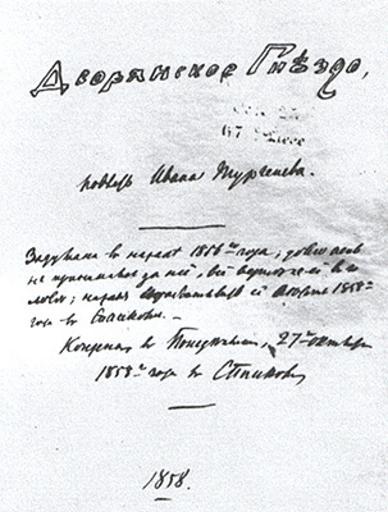 Дворянское Гнѣздо,
повѣсть Ивана Тургенева.
Задумана въ началѣ 1856го года; долго
не принимался за неё, всё вертѣлъ её въ
головѣ; началъ её 1858го
года въ Спасскомъ. –
Кончена въ Понедѣльникъ, 27го Октября
1858го года въ
1858.